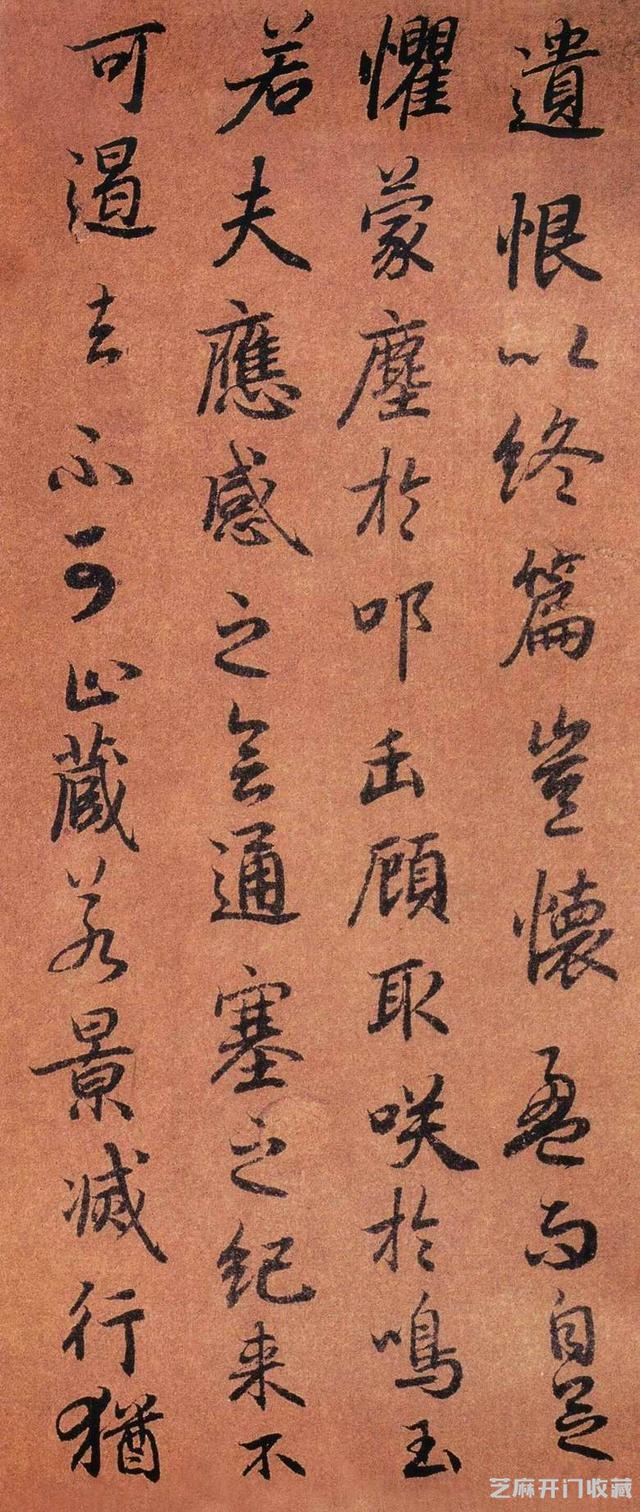 遺恨以終篇豈懷盈而自足
懼蒙塵於叩缶顧取咲於鳴玉
若夫應感之會通塞之紀来不
可遏去不可止藏若景滅行猶
芝麻开门收藏